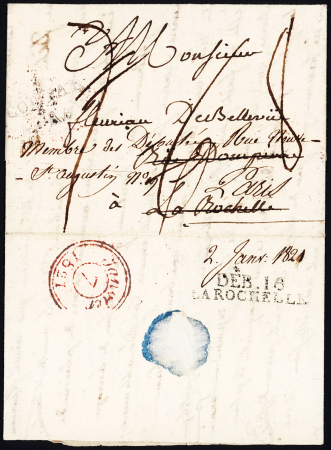 A Monsieur
fleuriau DeBellevüe
Membre des Députés, Rue Neuve
St augustin No
Paris
à La Rochelle
2. Janv. 1821
JANVIER
7
1821
DÉB. 16
LA ROCHELLE